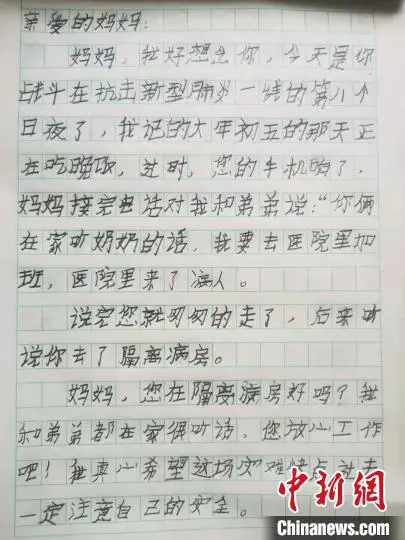 亲爱的妈妈:
妈妈,我好想念你,今天是你
战斗在抗击新型肺炎一线的第八个
日夜了,我记的大年初五的那天正
在吃晚饭,这时,您的手机响了.
妈妈接完电话对我和弟弟说:“你俩
在家听奶奶的话,我要去医院里加
班,医院里来了病人。
说完您就匆匆的走了,后来听
说你去了隔离病房。
妈妈,您在隔离病房好吗?我
和弟弟都在家很听话,您放心工作
吧!我真心希望这场灾难快点过去
一定注意自己的安全。
中新网
www.chinanews.com